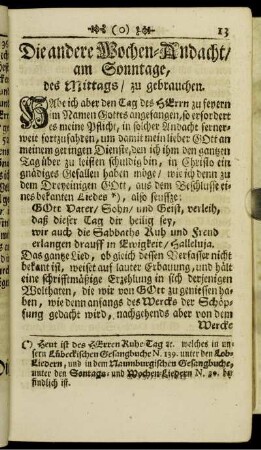 (o) 13
Die andere Wochen-Andacht/
am Sonntage,
des Mittags/ zu gebrauchen.
HAbe ich aber den Tag des HErrn zu feyern
in Namen Gottes angefangen, so erfordert
es meine Pflicht, in solcher Andacht ferner-
weit fortzufahren, um damit mein lieber GOtt an
meinem geringen Dienste, den ich ihm den gantzen
Tag über zu leisten schuldig bin, in Christo ein
gnädiges Gefallen haben möge, wie ich denn zu
dem Dreyeinigen GOtt, aus dem Beschlusse ei-
nes bekanten Liedes *), also seufze:
GOtt Vater/ Sohn/ und Geist, verleih,
daß dieser Tag dir heilig sey,
wir auch die Sabbaths Ruh und Freud
erlangen drauff in Ewigkeit/ Halleluja.
Das gantze Lied, ob gleich dessen Verfasser nicht
bekant ist, weiset auf lauter Erbauung, und hält
eine schrifftmäßige Erzehlung in sich derjenigen
Wolthaten, die wir von GOtt zu geniessen ha-
ben, wie denn anfangs des Wercks der Schöp-
fung gedacht wird, nachgehends aber von dem
Wercke
(*) Heut ist des HErren Ruhe-Tag ꝛc. welches in un-
sern Lübeckischen Gesangbuche N. 139. unter den Lob-
Liedern, und in dem Naumburgischen Gesangbuche,
unter den Sontags- und Wochen-Liedern N. be-
findlich ist.